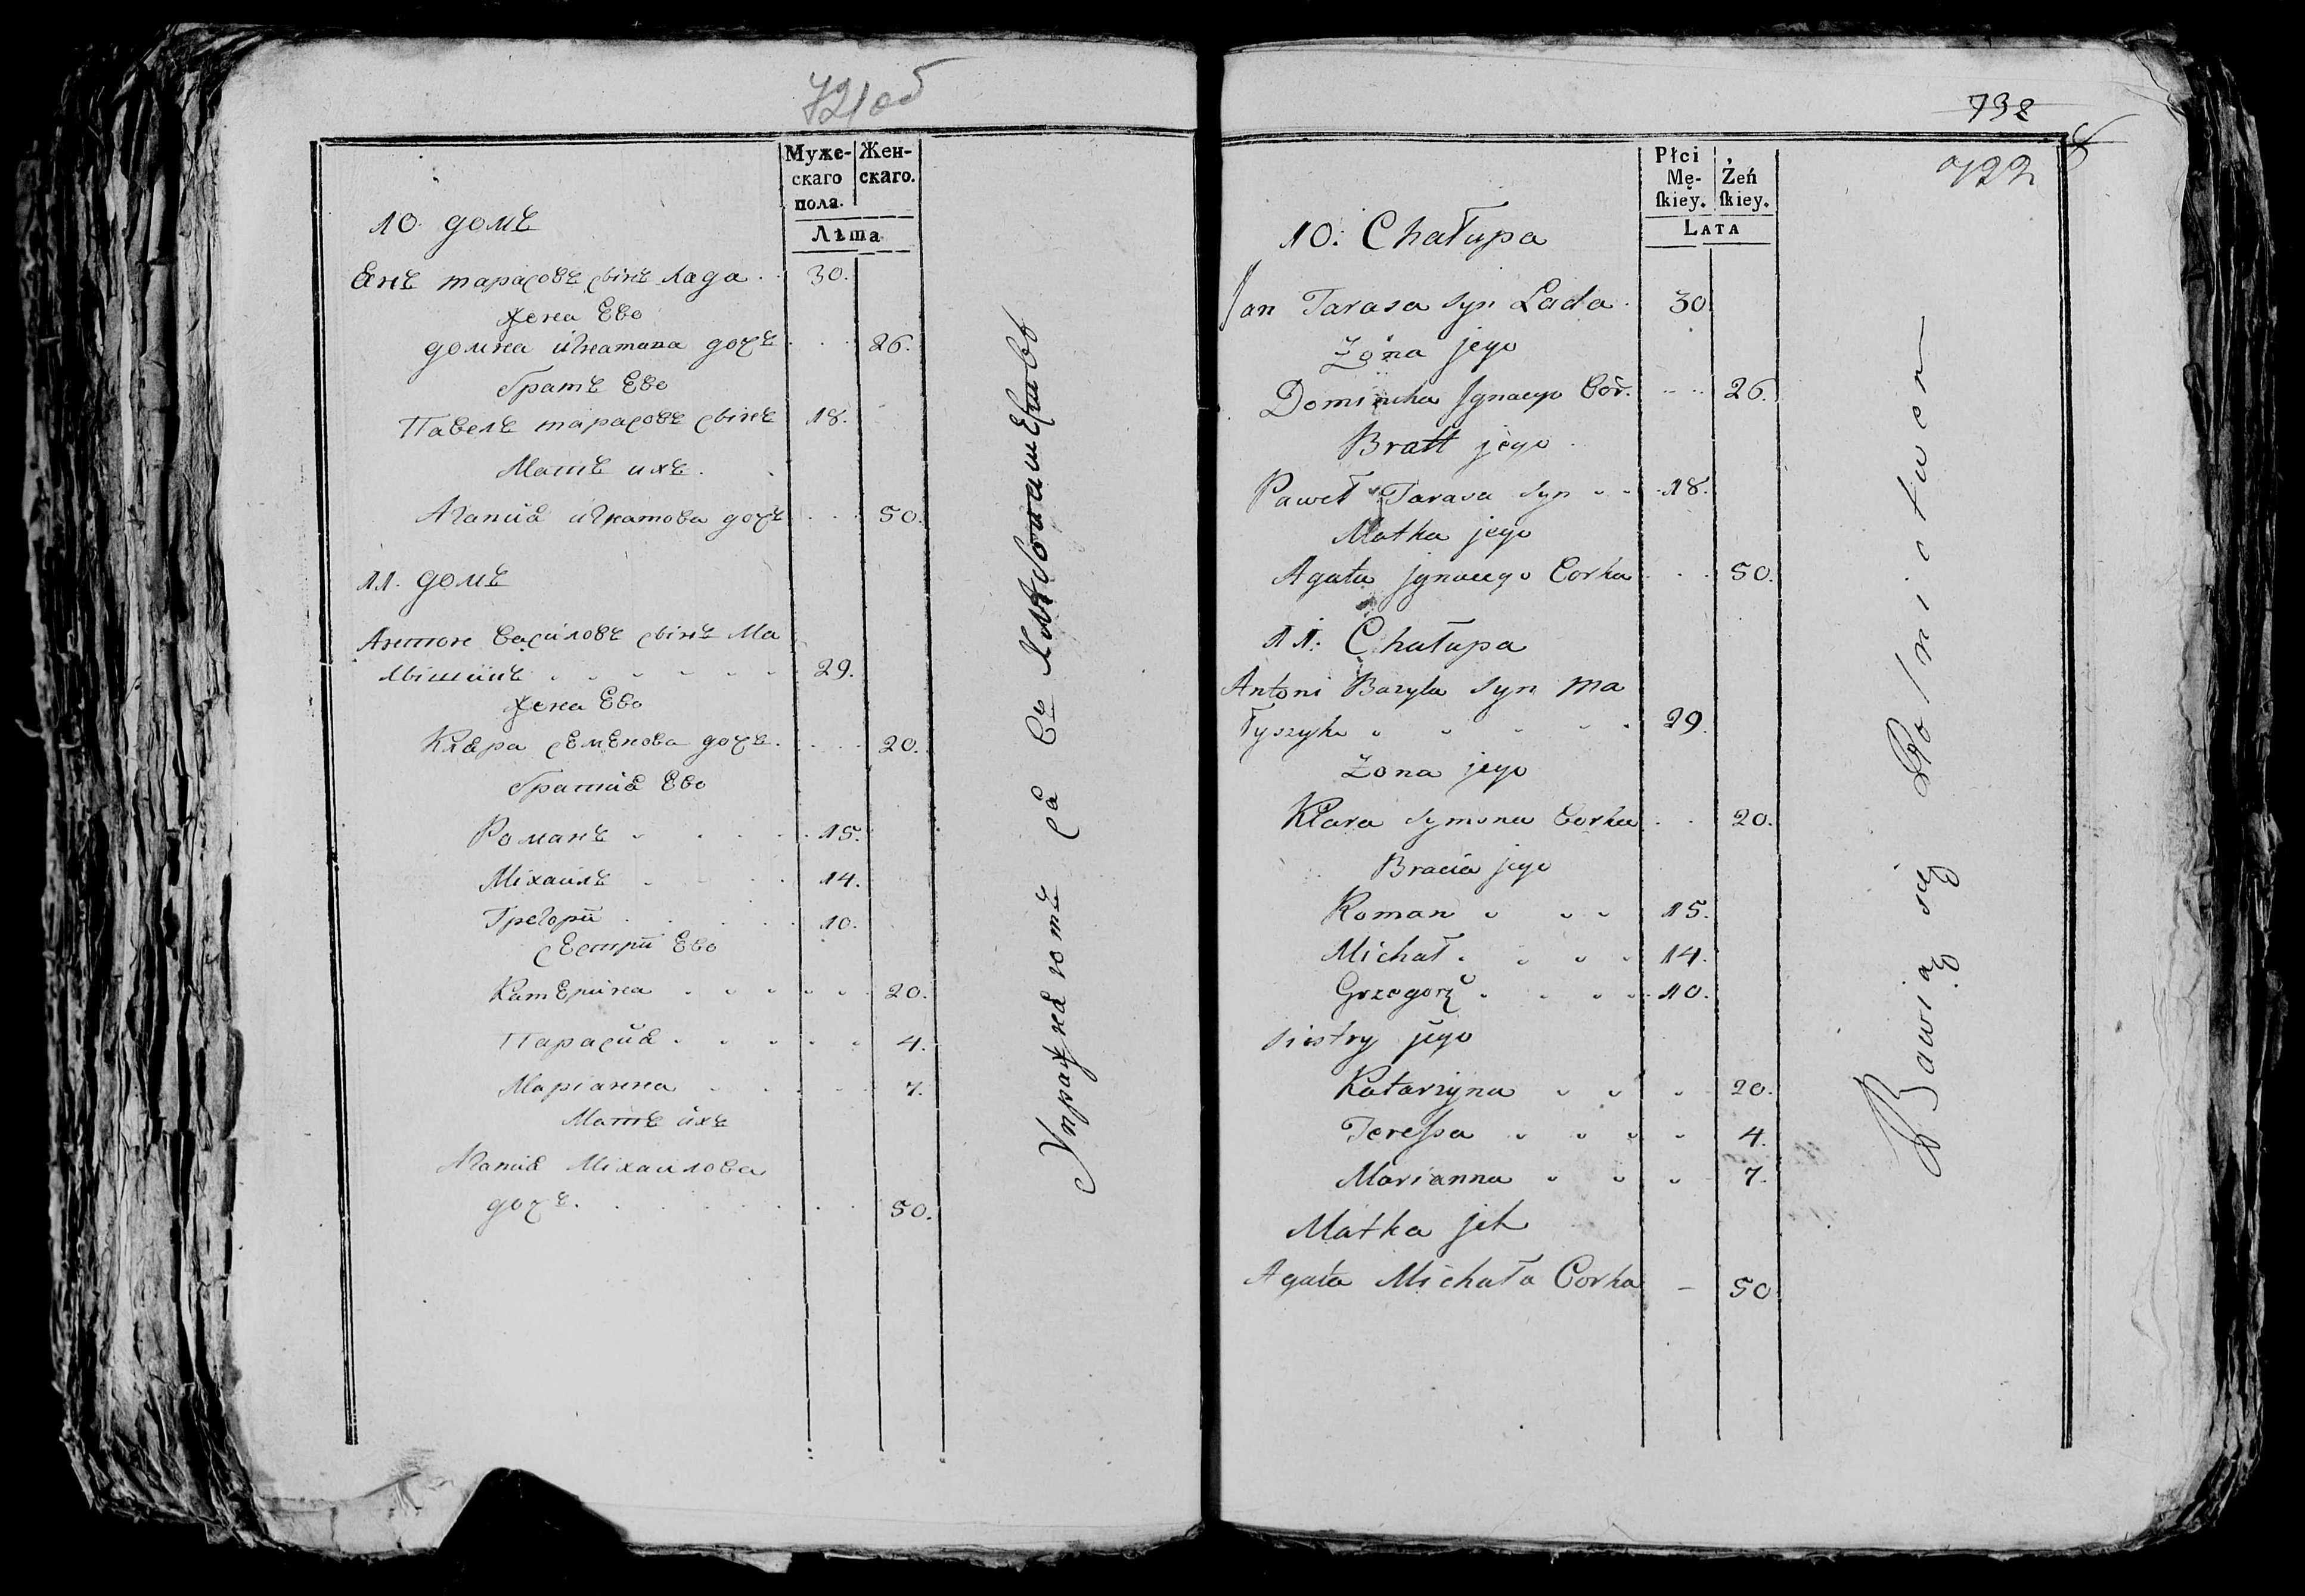 721об
Муже-
скаго
пола.
Жен-
скаго.
Лѣта
10. домъ
Янъ тарасовъ сынъ Лада . . 30.
жена Ево
домна игнатова дочъ . . . 26.
братъ Ево
Павелъ тарасовъ сынъ 18.
Матъ ихъ.
Агапия игнатова дочъ . . . 50.
11. домъ
Антонъ василовъ сынъ Ма
лышикъ . . . . . . 29.
жена Ево
Кляра семенова дочъ. . . . 20.
братия Ево
Романъ . . . . 15.
Міхаилъ . . . . 14.
Грегори . . . . 10.
сестри Ево
Катерина . . . . . 20.
Парасия . . . . . 4.
Маріанна . . . . 7.
Матъ ихъ
Агапия Міхаилова
дочъ. . . . . . . 50.
Упражняютъ ся въ
732
722
Płci
Mę-
ſkiey.
Żeń
ſkiey.
LATA
10: Chałupa
Jan Tarasa syn Lada . 30
Zona jego
Dominika Jgnacego Cór. . . . 26.
Bratt jego .
Paweł Tarasa syn . . . 18.
Matka jego
Agata Jgnacego Corka . . . 50.
11: Chałupa
Antoni Bazyla syn Ma
łyszyk . . . . . 29.
Zona jego
Klara Symona Corka . . 20.
Bracia jego
Roman . . . 15.
Michał . . . . 14.
Grzegorz . . . . 10.
Siostry jego
Katarzyna . . . 20.
Tereſsa . . . . . 4.
Marianna . . . 7.
Matka jch
Agata Michała Corka – 50
Bawią się Rolnictwem